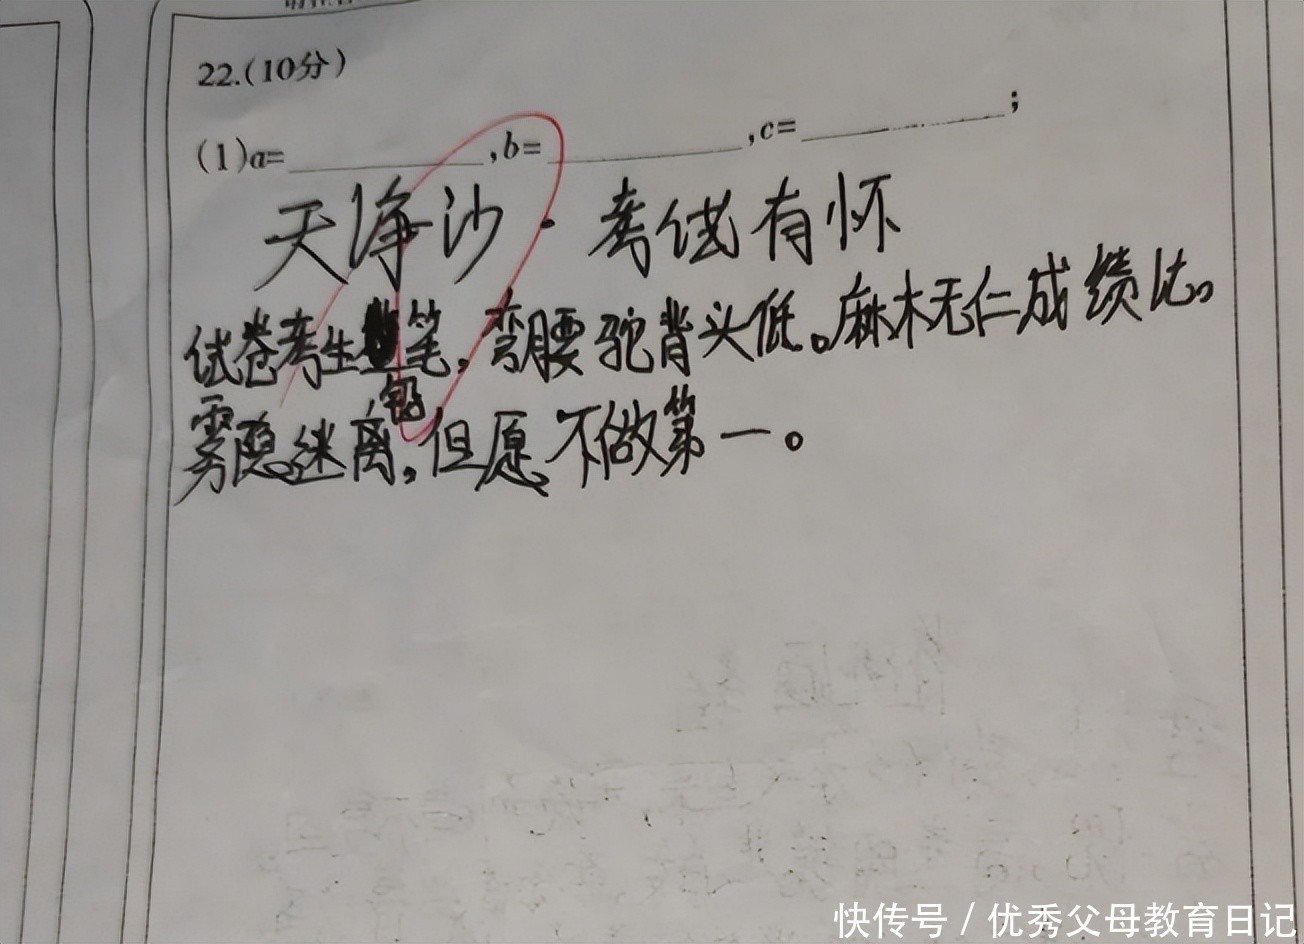 22.(10分)
(1)a= ,b= ,c= ;
天净沙·考试有怀
试卷考生铅笔,弯腰驼背头低。麻木无仁成绩比。
雾隐迷离,但愿不做第一。
快传号/优秀父母教育日记